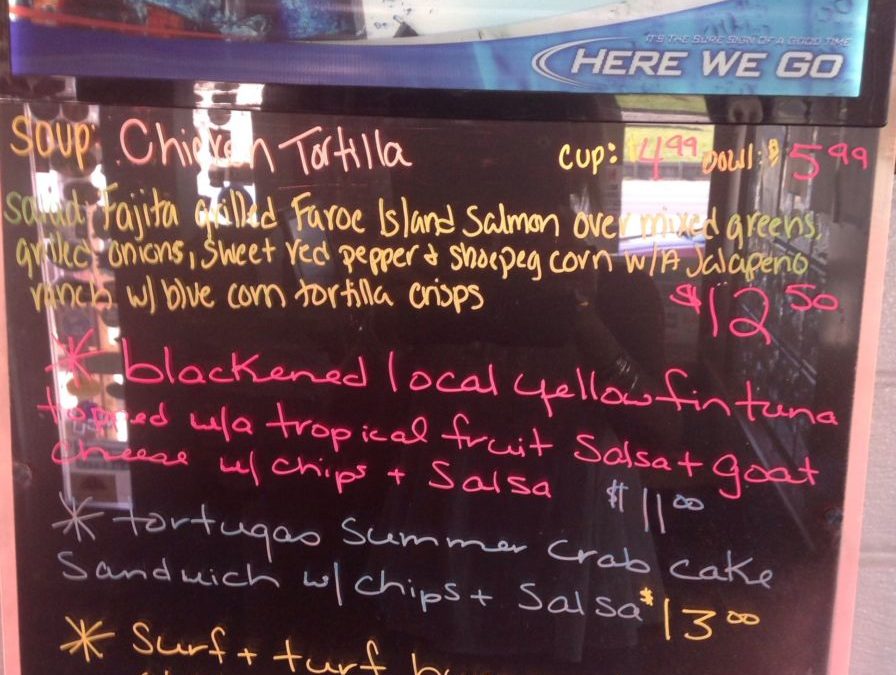 IT'S THE SURE SIGN OF A GOOD TIME
HERE WE GO
Soup: Chicken Tortilla cup: 4.99 bowl: $5.99
Salad: Fajita grilled Faroe Island Salmon over mixed greens,
grilled onions, sweet red pepper & shoepeg corn w/A Jalapeno
ranch w/ blue corn tortilla crisps $12.50
* blackened local yellowfin tuna
topped w/a tropical fruit Salsa + goat
cheese w/ chips + Salsa $11.00
* tortugas summer crab cake
Sandwich w/ chips + Salsa $13.00
* Surf + turf